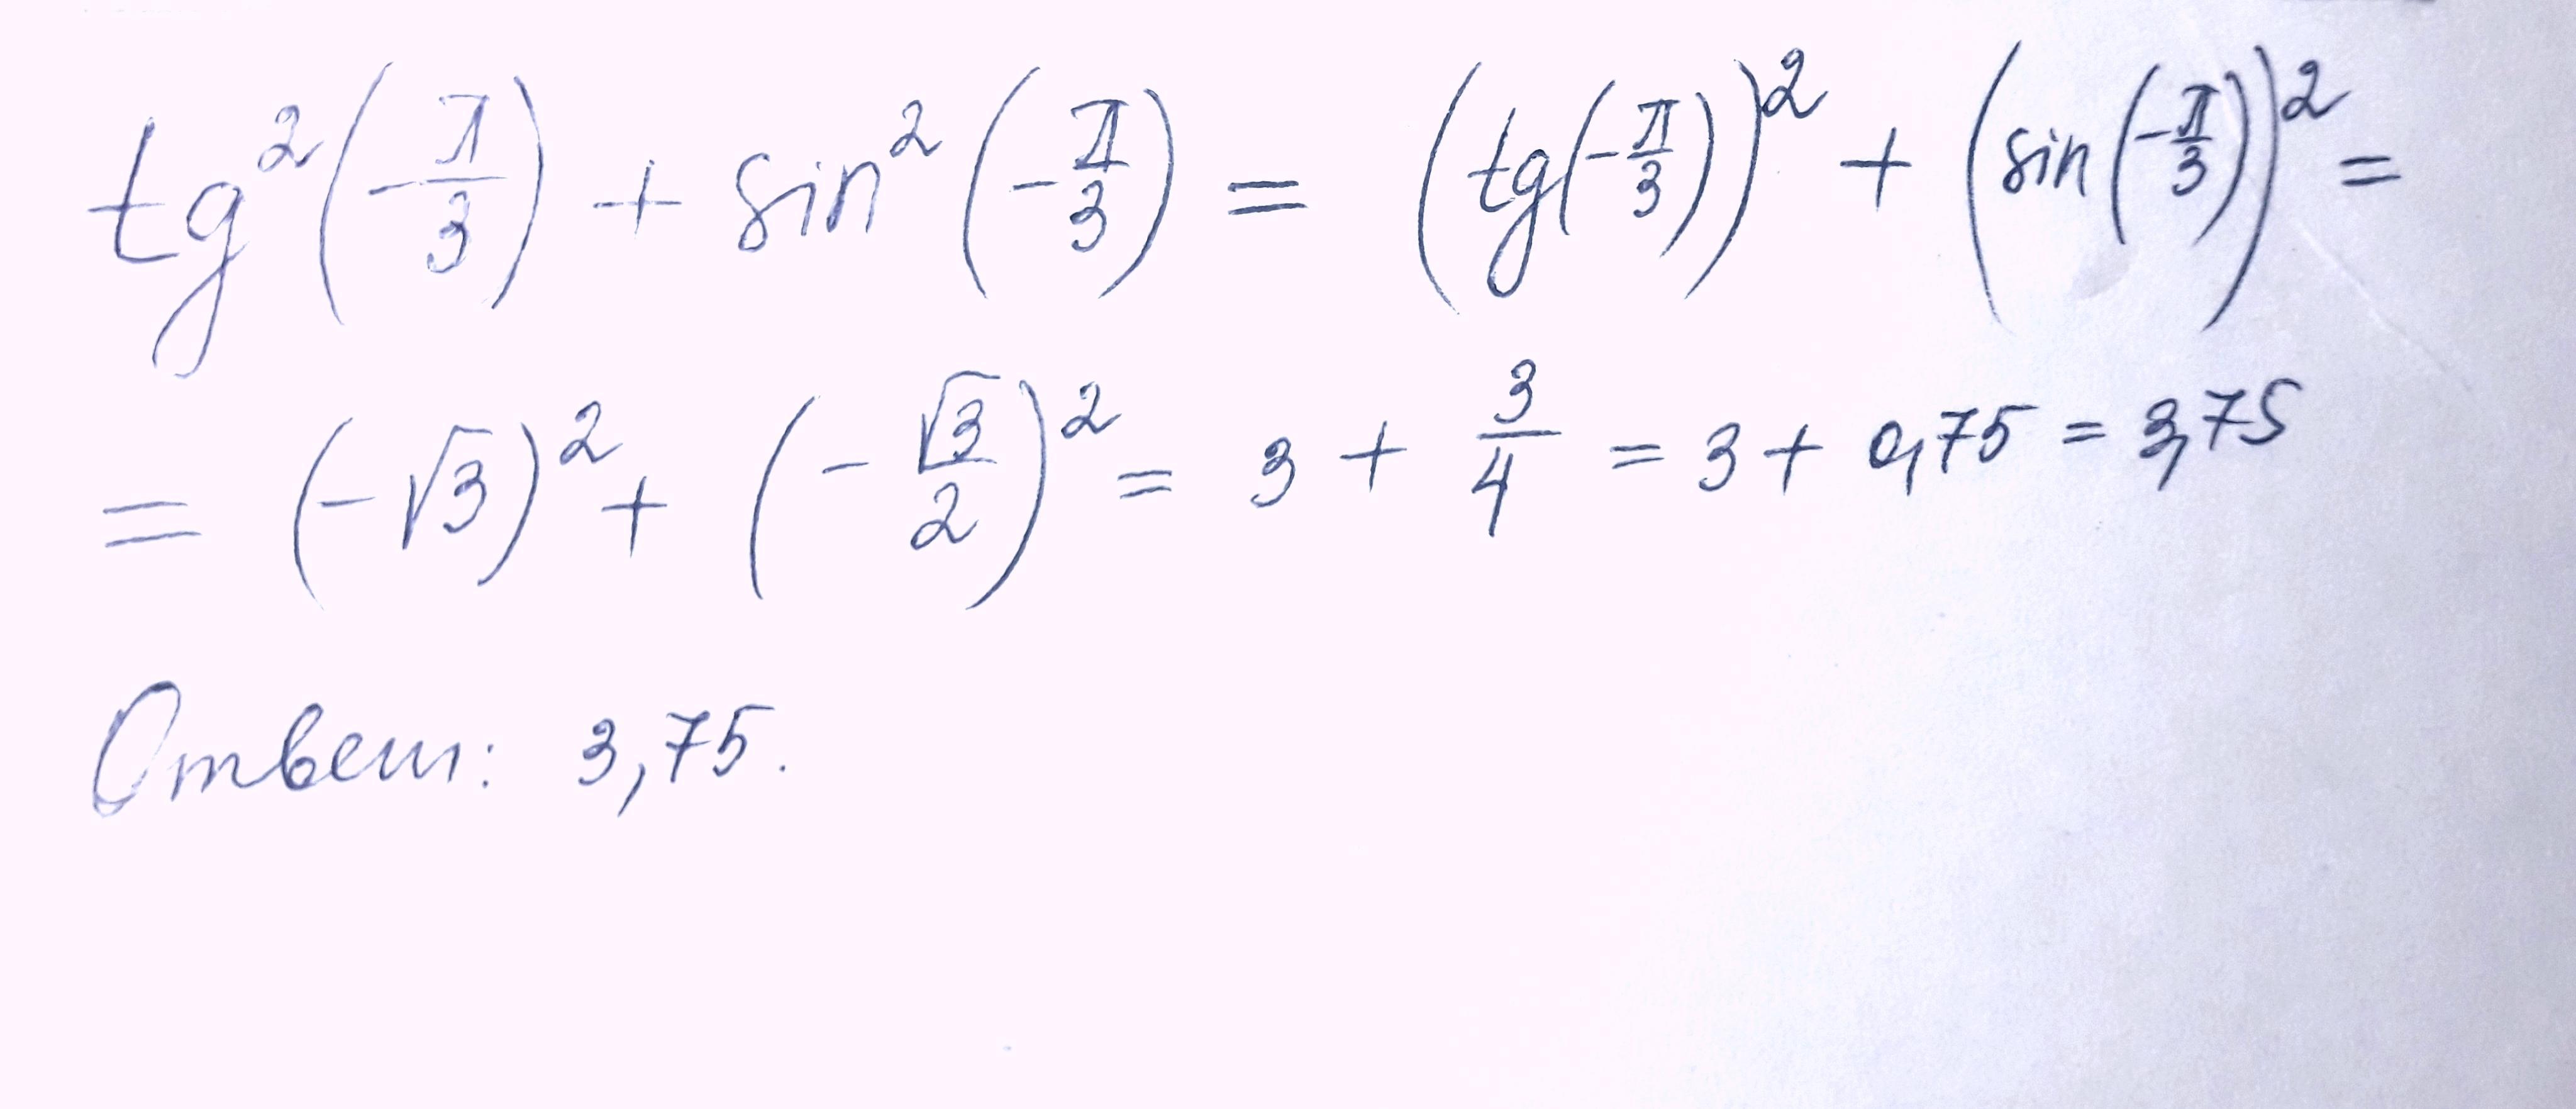 tg²(-π/3) + sin²(-π/3) = (tg(-π/3))² + (sin(-π/3))² =
= (-√3)² + (-√3/2)² = 3 + 3/4 = 3 + 0,75 = 3,75
Ответ: 3,75.